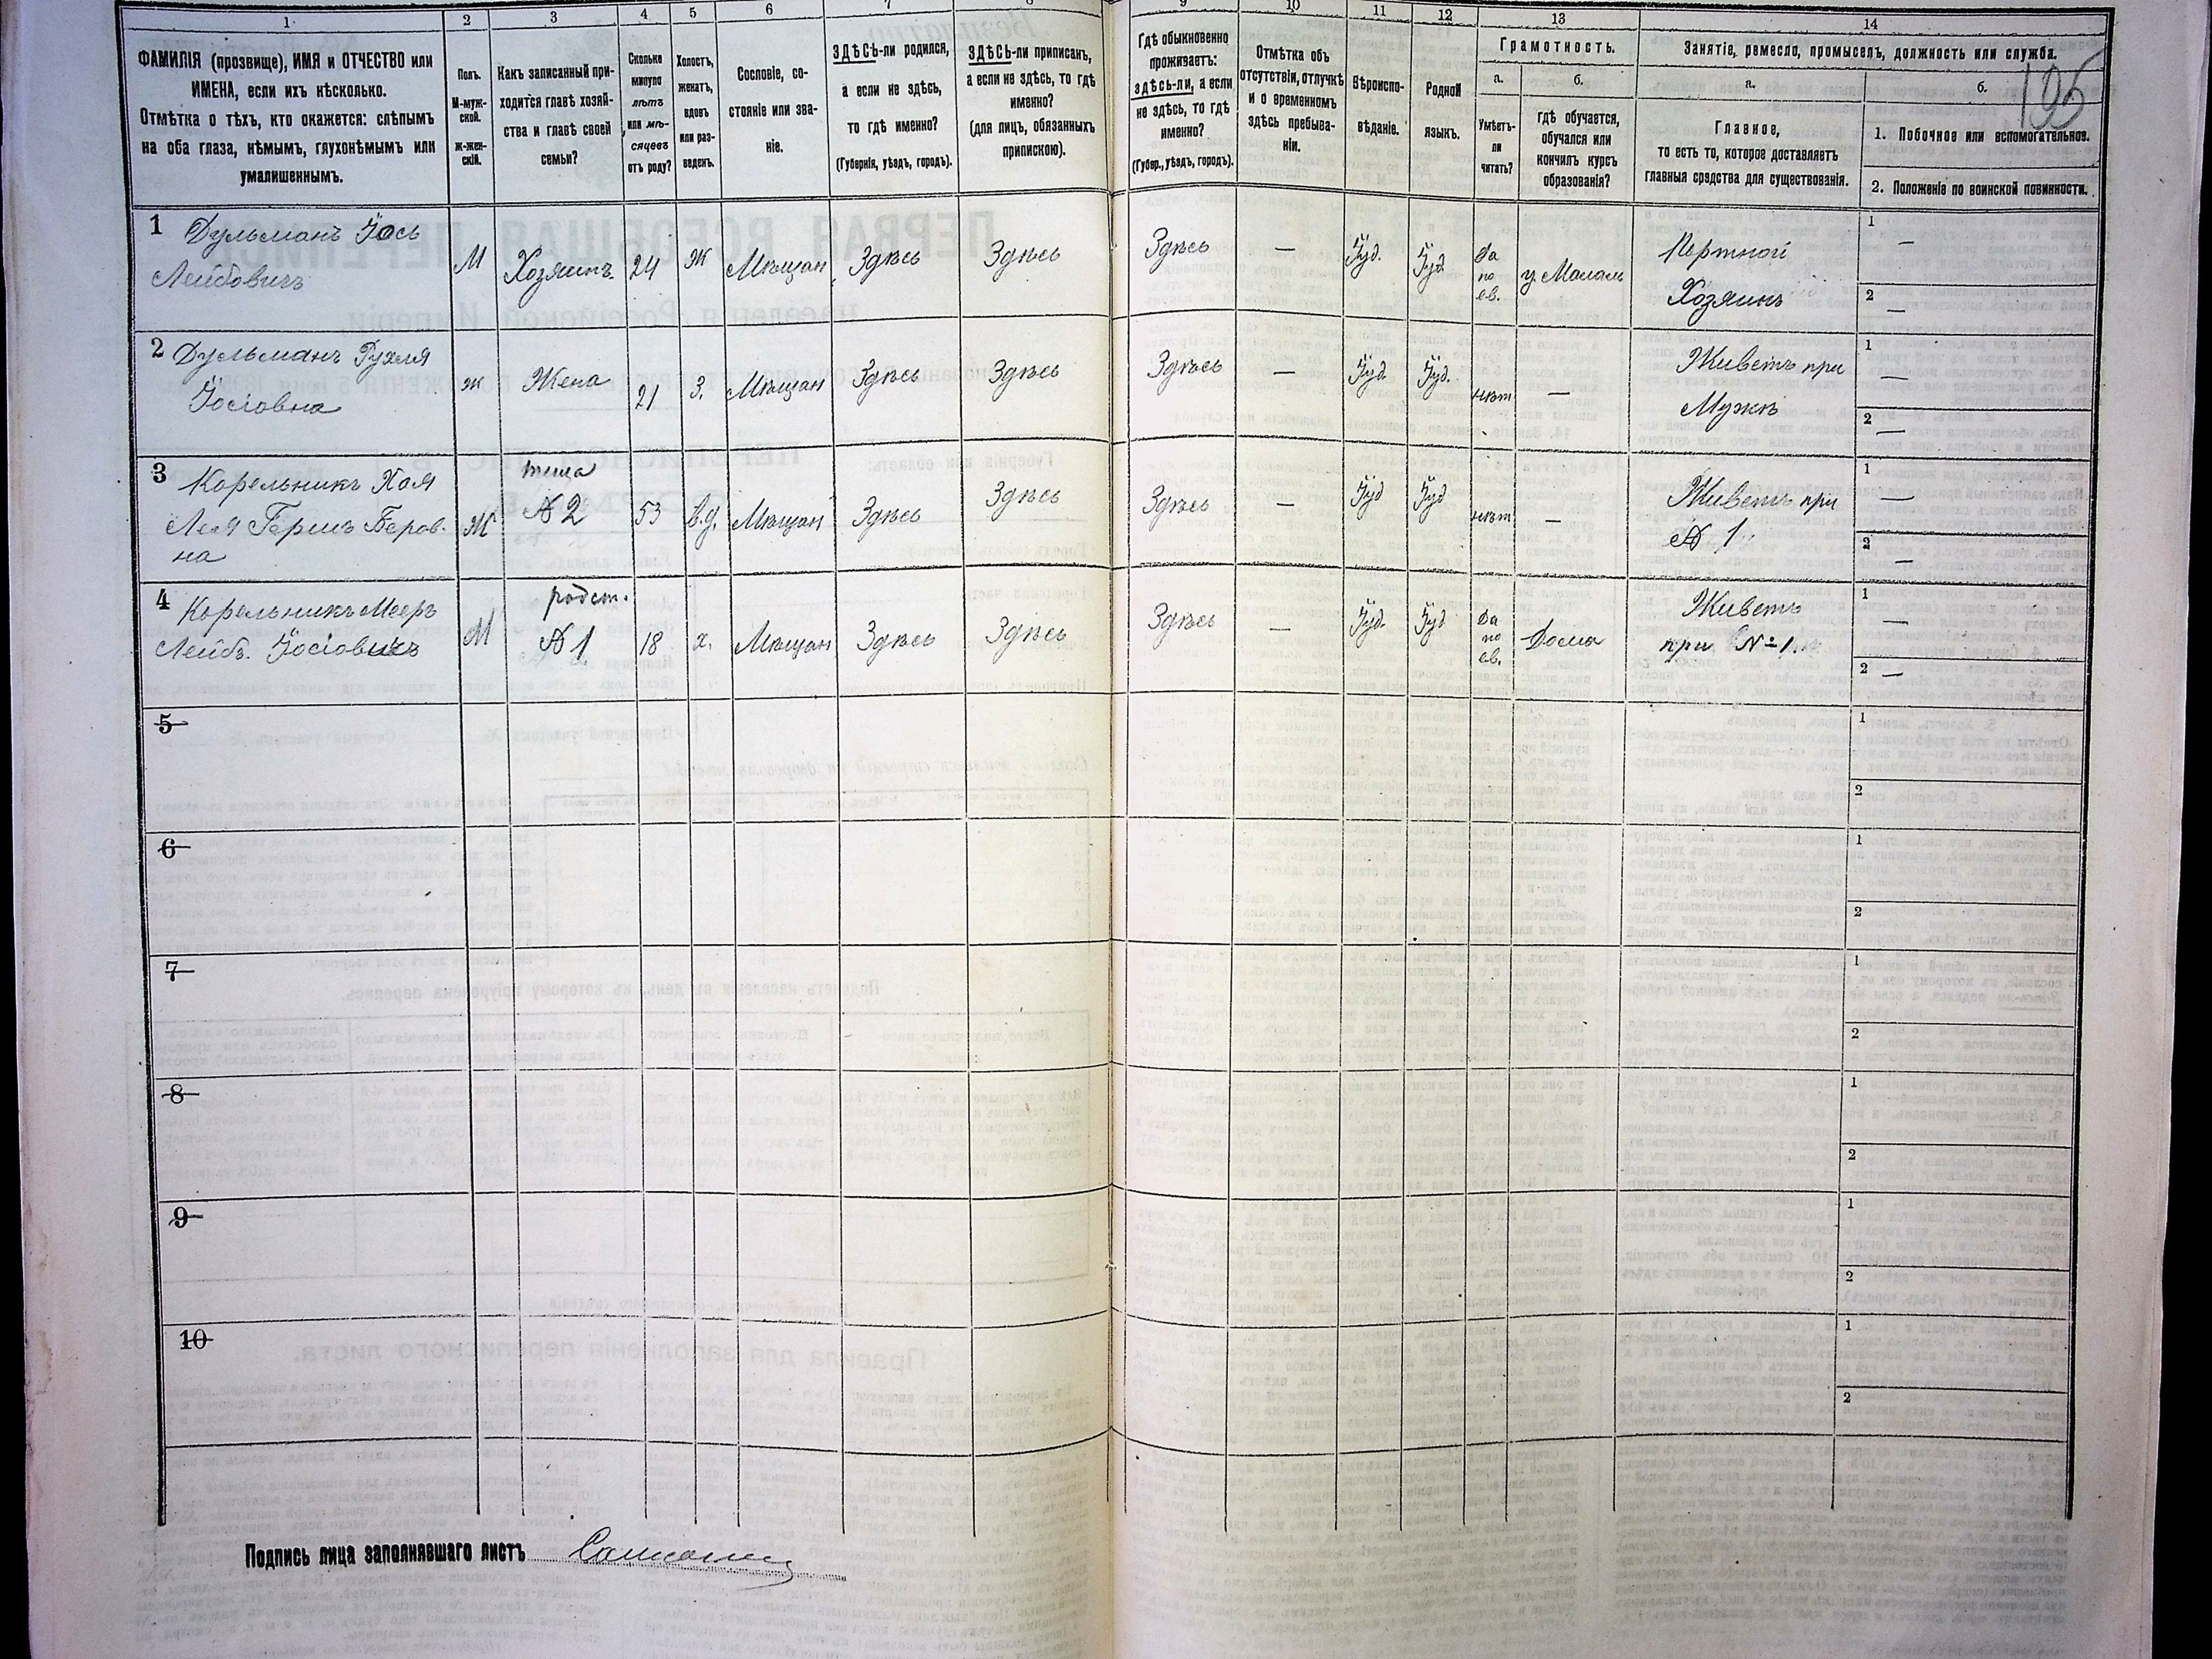 1 2 3 4 5 6 7 8 9 10 11 12 13 14
ФАМИЛІЯ (прозвище), ИМЯ и ОТЧЕСТВО или
ИМЕНА, если ихъ нѣсколько.
Отмѣтка о тѣхъ, кто окажется: слѣпымъ
на оба глаза, нѣмымъ, глухонѣмымъ или
умалишеннымъ.
Полъ.
М-муж-
ской.
Ж-жен-
скій.
Какъ записанный при-
ходится главѣ хозяй-
ства и главѣ своей
семьи?
Сколько
минуло
лѣтъ
или мѣ-
сяцевъ
отъ роду?
Холостъ,
женатъ,
вдовъ
или раз-
веденъ.
Сословіе, со-
стояніе или зва-
ніе.
ЗДѢСЬ-ли родился,
а если не здѣсь,
то гдѣ именно?
(Губернія, уѣздъ, городъ).
ЗДѢСЬ-ли приписанъ,
а если не здѣсь, то гдѣ
именно?
(для лицъ, обязанныхъ
припискою).
Гдѣ обыкновенно
проживаетъ:
здѣсь-ли, а если
не здѣсь, то гдѣ
именно?
(Губер., уѣздъ, городъ).
Отмѣтка объ
отсутствіи, отлучкѣ
и о временномъ
здѣсь пребыва-
ніи.
Вѣроиспо-
вѣданіе.
Родной
языкъ.
Грамотность.
а.
Умѣетъ-
ли
читать?
б.
гдѣ обучается,
обучался или
кончилъ курсъ
образованія?
Занятіе, ремесло, промыселъ, должность или служба.
а.
Главное,
то есть то, которое доставляетъ
главныя средства для существованія.
б.
195
1. Побочное или вспомогательное.
2. Положеніе по воинской повинности.
1 Дульманъ Іось
Лейбовичъ
М
Хозяинъ
24
Ж
Мѣщан
Здѣсь
Здѣсь
Здѣсь
—
Іуд.
Іуд
Да
по
ев.
у Малам
Портной
Хозяинъ
1 —
2 —
2 Дульманъ Рухля
Іосіовна
Ж
Жена
21
З.
Мѣщан
Здѣсь
Здѣсь
Здѣсь
—
Іуд.
Іуд.
нѣт
—
Живетъ при
Мужѣ
1 —
2 —
3 Корельникъ Хая
Лея Гершъ Беров-
на
Ж
теща
№ 2
53
в.д.
Мѣщан
Здѣсь
Здѣсь
Здѣсь
—
Іуд
Іуд
нѣт
—
Живетъ при
№ 1
1 —
2 —
4 Корельникъ Мееръ
Лейбъ Іосіовичъ
М
родст.
№ 1
18
х.
Мѣщан
Здѣсь
Здѣсь
Здѣсь
—
Іуд.
Іуд
Да
по
ев.
Дома
Живетъ
при № 1
1 —
2 —
5
1
2
6
1
2
7
1
2
8
1
2
9
1
2
10
1
2
Подпись лица заполнявшаго листъ